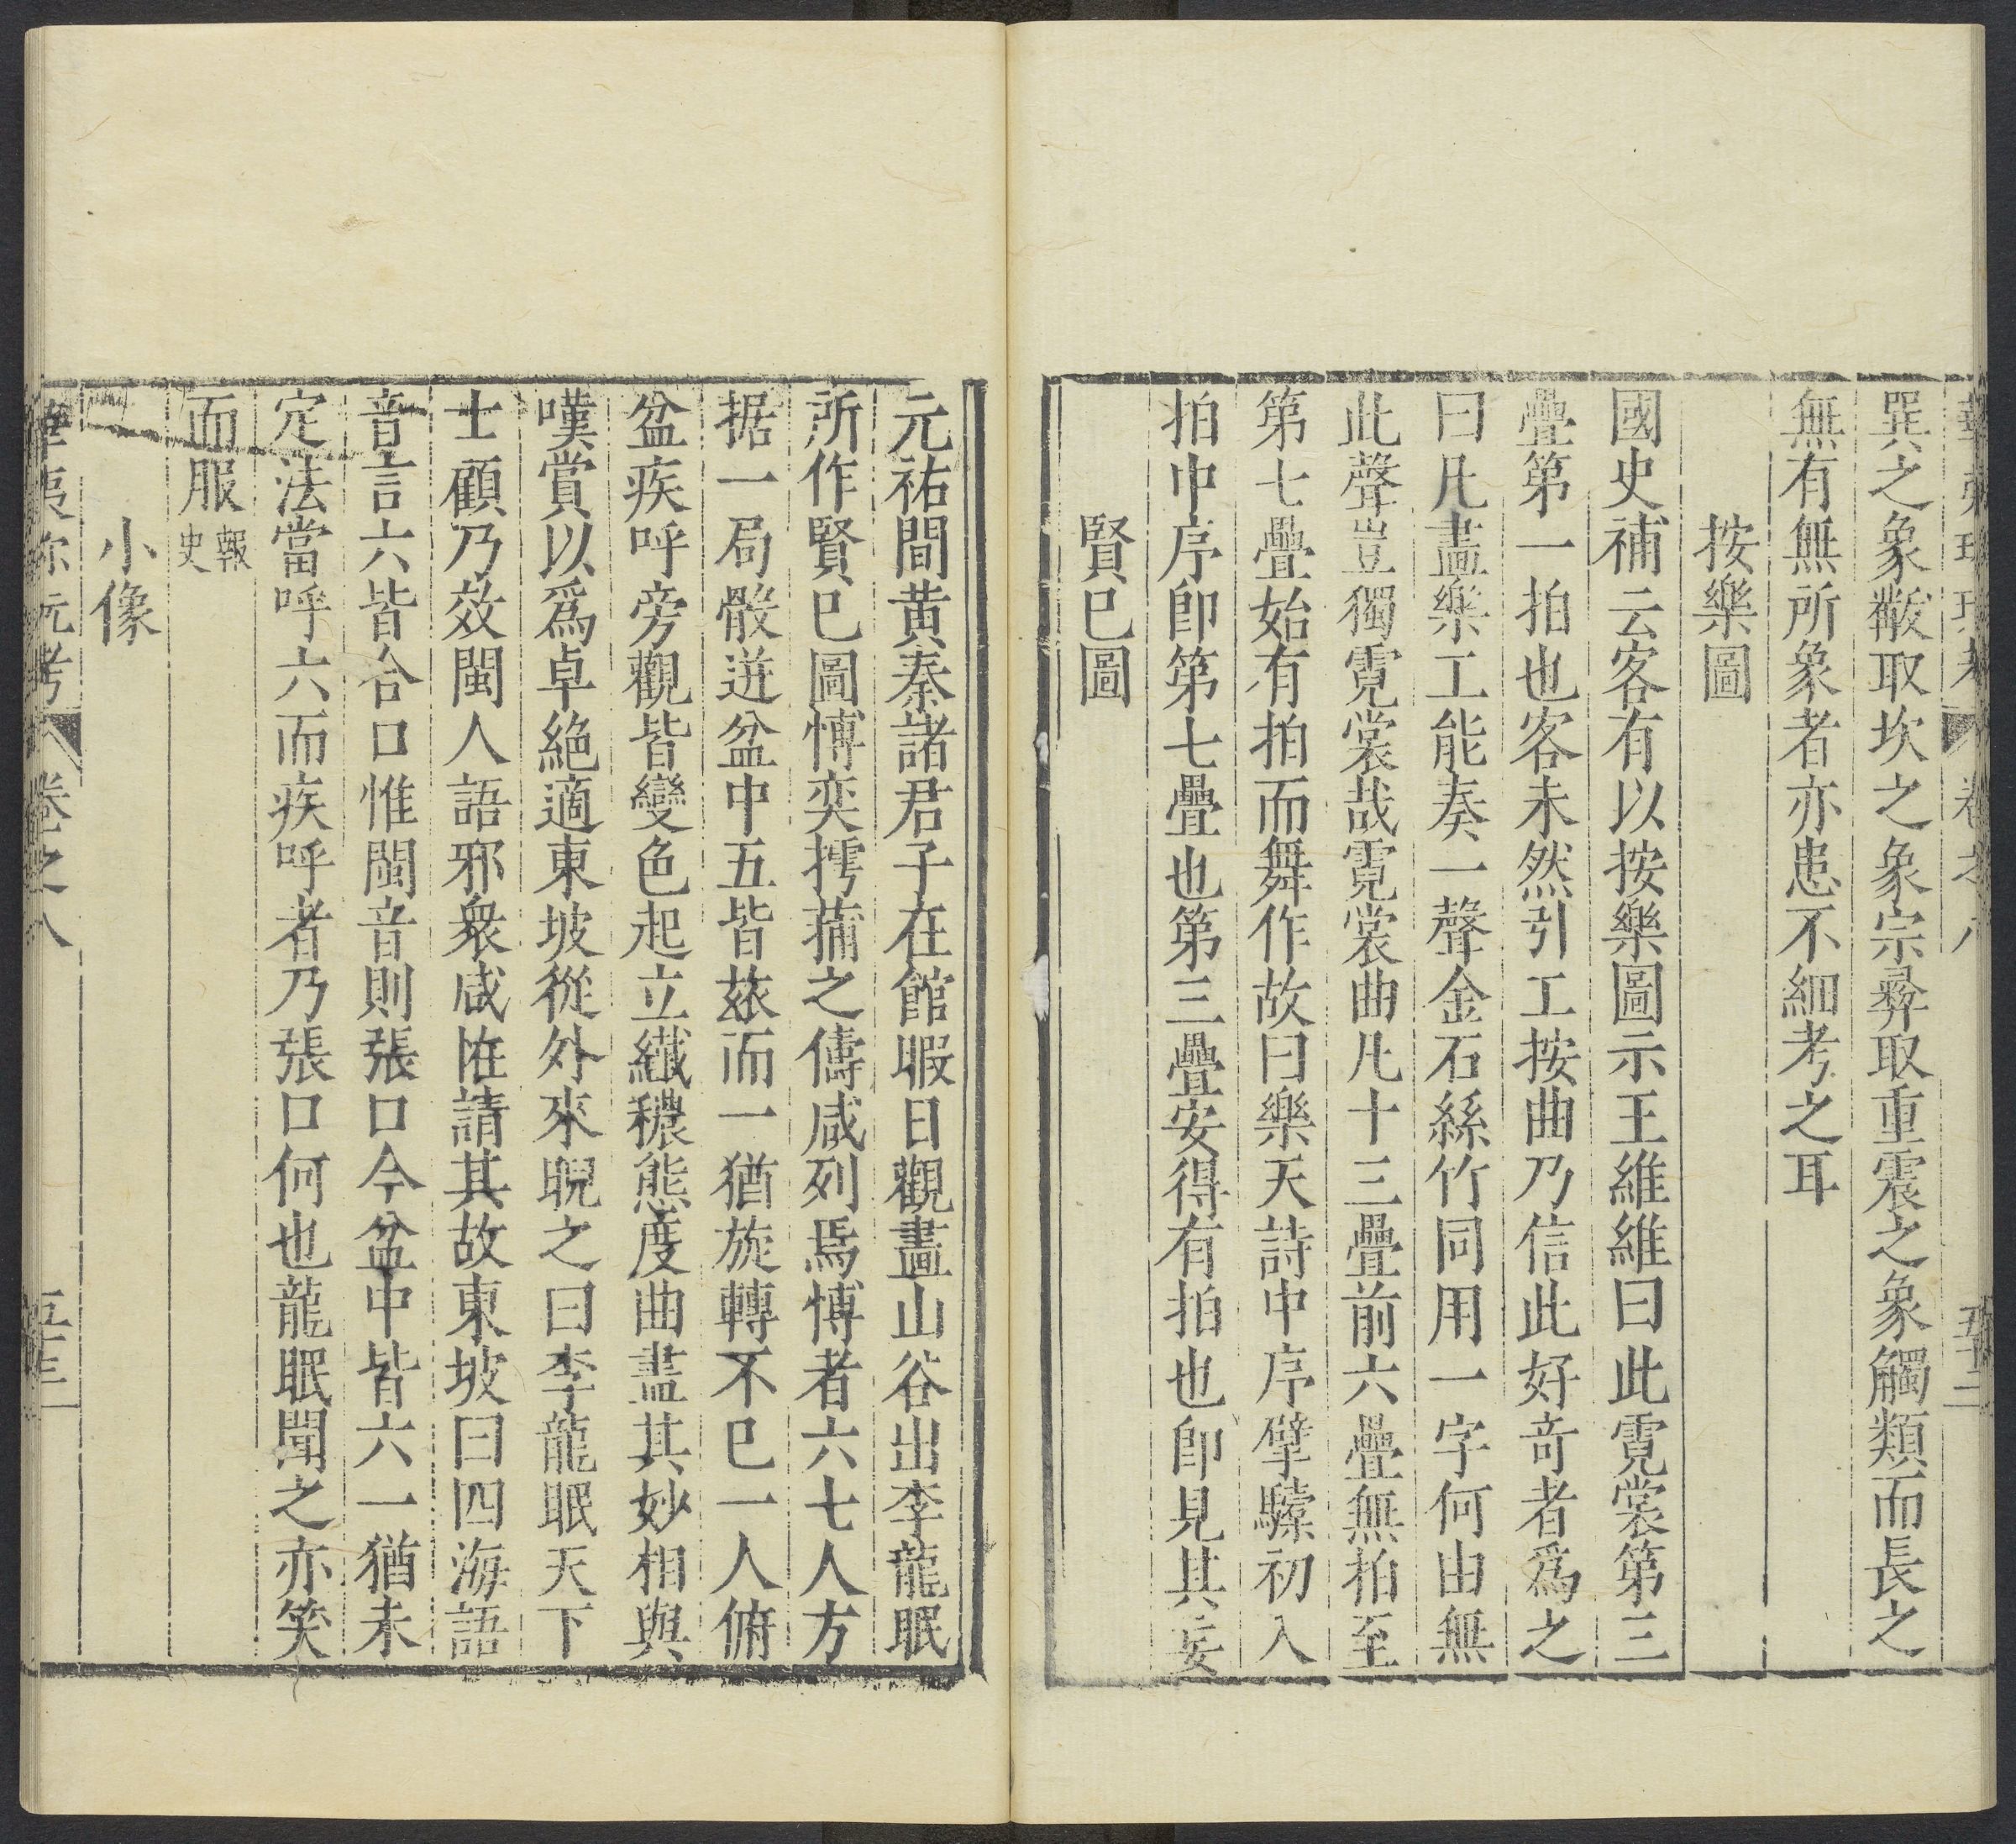 巽之象黻取坎之象宗彝取重震之象觸類而長之
無有無所象者亦患不細考之耳
按樂圖
國史補云客有以按樂圖示王維維曰此霓裳第三
疊第一拍也客未然引工按曲乃信此好奇者爲之
曰凡畫樂工能奏一聲金石絲竹同用一字何由無
此聲豈獨霓裳哉霓裳曲凡十三疊前六疊無拍至
第七疊始有拍而舞作故曰樂天詩中序擘騞初入
拍中序卽第七疊也第三疊安得有拍也卽見其妄
賢已圖
元祐間黄秦諸君子在館暇日觀畫山谷出李龍眠
所作賢已圖博奕摴蒱之儔咸列焉博者六七人方
据一局骰迸盆中五皆玈而一猶旋轉不已一人俯
盆疾呼旁觀皆變色起立纎穠態度曲盡其妙相與
嘆賞以爲卓絶適東坡從外來睨之曰李龍眠天下
士顧乃效閩人語邪衆咸恠請其故東坡曰四海語
音言六皆合口惟閩音則張口今盆中皆六一猶未
定法當呼六而疾呼者乃張口何也龍眠聞之亦笑
而服報史
小像
夷 玩考 卷之八 五十三